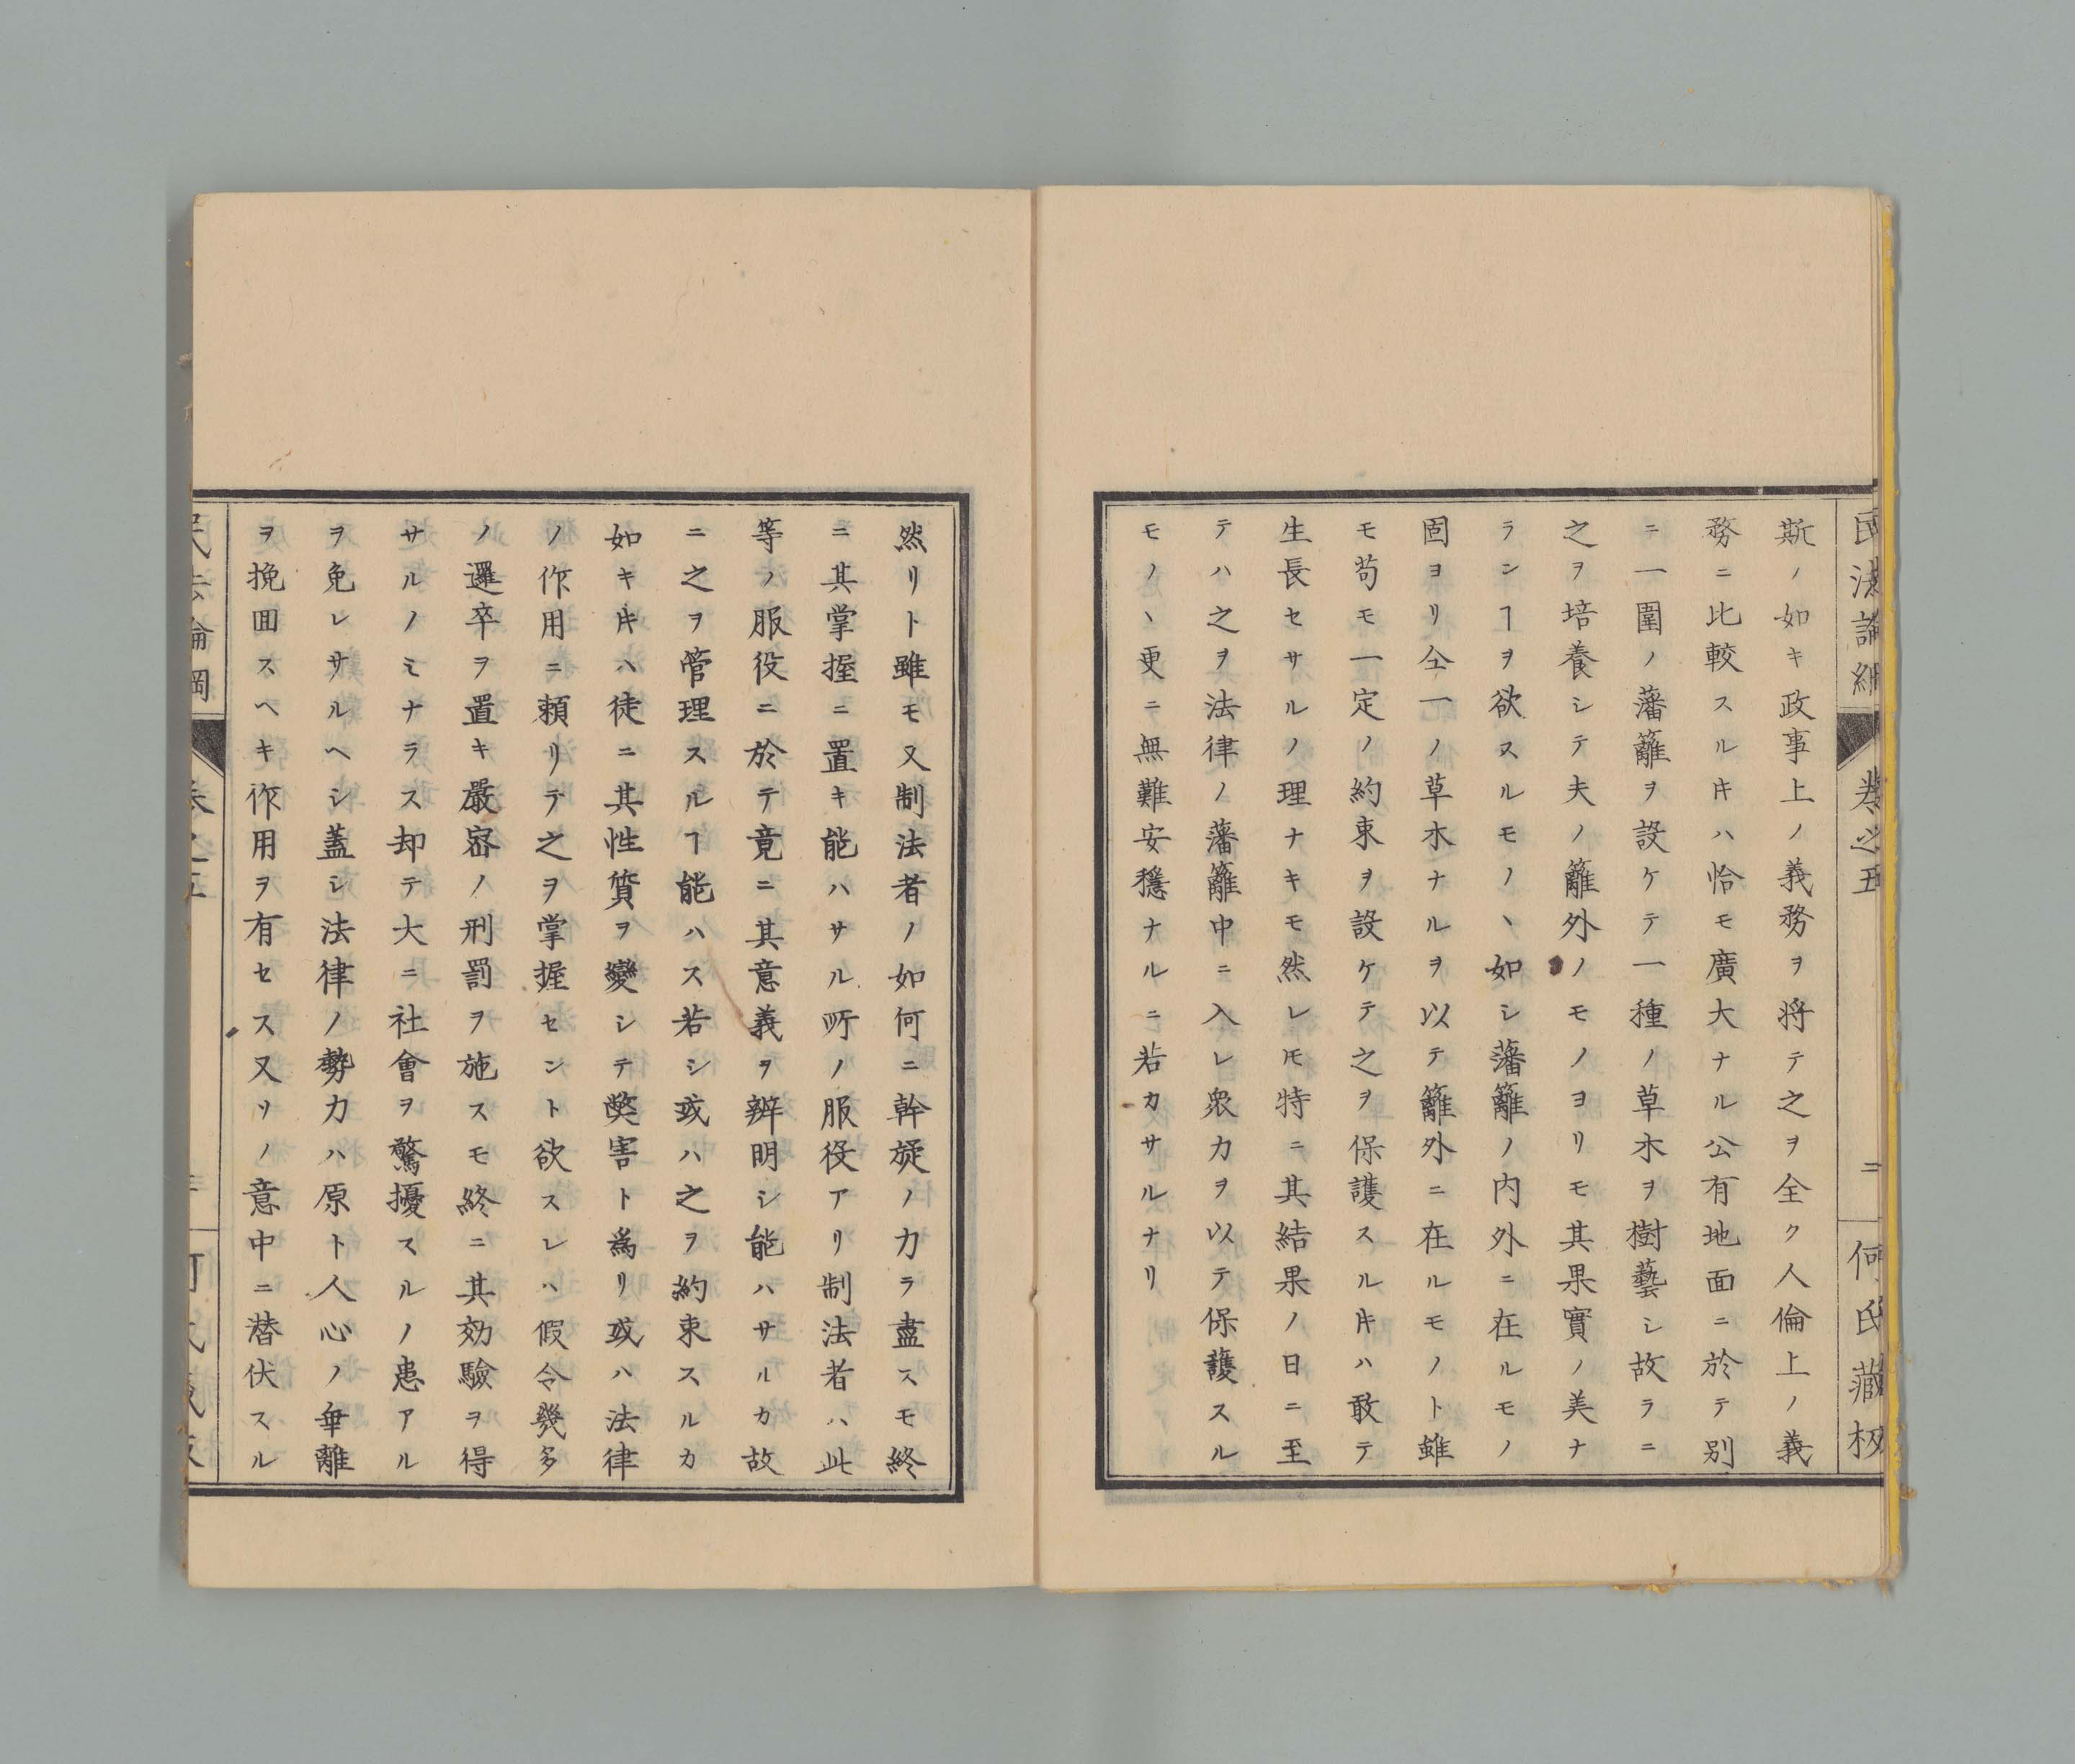 民法論綱
卷之五
二
何氏藏板
斯ノ如キ政事上ノ義務ヲ将テ之ヲ全ク人倫上ノ義
務ニ比較スルキハ恰モ廣大ナル公有地面ニ於テ別
ニ一圍ノ藩籬ヲ設ケテ一種ノ草木ヲ樹藝シ故ラニ
之ヲ培養シテ夫ノ籬外ノモノヨリモ其果實ノ美ナ
ランヿヲ欲スルモノヽ如シ藩籬ノ内外ニ在ルモノ
固ヨリ仝一ノ草木ナルヲ以テ籬外ニ在ルモノト雖
モ苟モ一定ノ約束ヲ設ケテ之ヲ保護スルキハ敢テ
生長セサルノ理ナキモ然レ𪜈特ニ其結果ノ日ニ至
テハ之ヲ法律ノ藩籬中ニ入レ衆力ヲ以テ保護スル
モノヽ更ニ無難安穩ナルニ若カサルナリ
然リト雖モ又制法者ノ如何ニ幹旋ノ力ラ盡スモ終
ニ其掌握ニ置キ能ハサル所ノ服役アリ制法者ハ此
等ノ服役ニ於テ竟ニ其意義ヲ辨明シ能ハサルカ故
ニ之ヲ管理スルヿ能ハス若シ或ハ之ヲ約束スルカ
如キキハ徒ニ其性質ヲ變シテ獘害ト爲リ或ハ法律
ノ作用ニ頼リテ之ヲ掌握セント欲スレハ假令幾多
ノ邏卒ヲ置キ嚴宻ノ刑罰ヲ施スモ終ニ其効驗ヲ得
サルノミナラス却テ大ニ社會ヲ驚擾スルノ患アル
ヲ免レサルヘシ蓋シ法律ノ勢力ハ原ト人心ノ乖離
ヲ挽囬スヘキ作用ヲ有セス又ソノ意中ニ潜伏スル
民法論綱
卷之五
何氏藏板